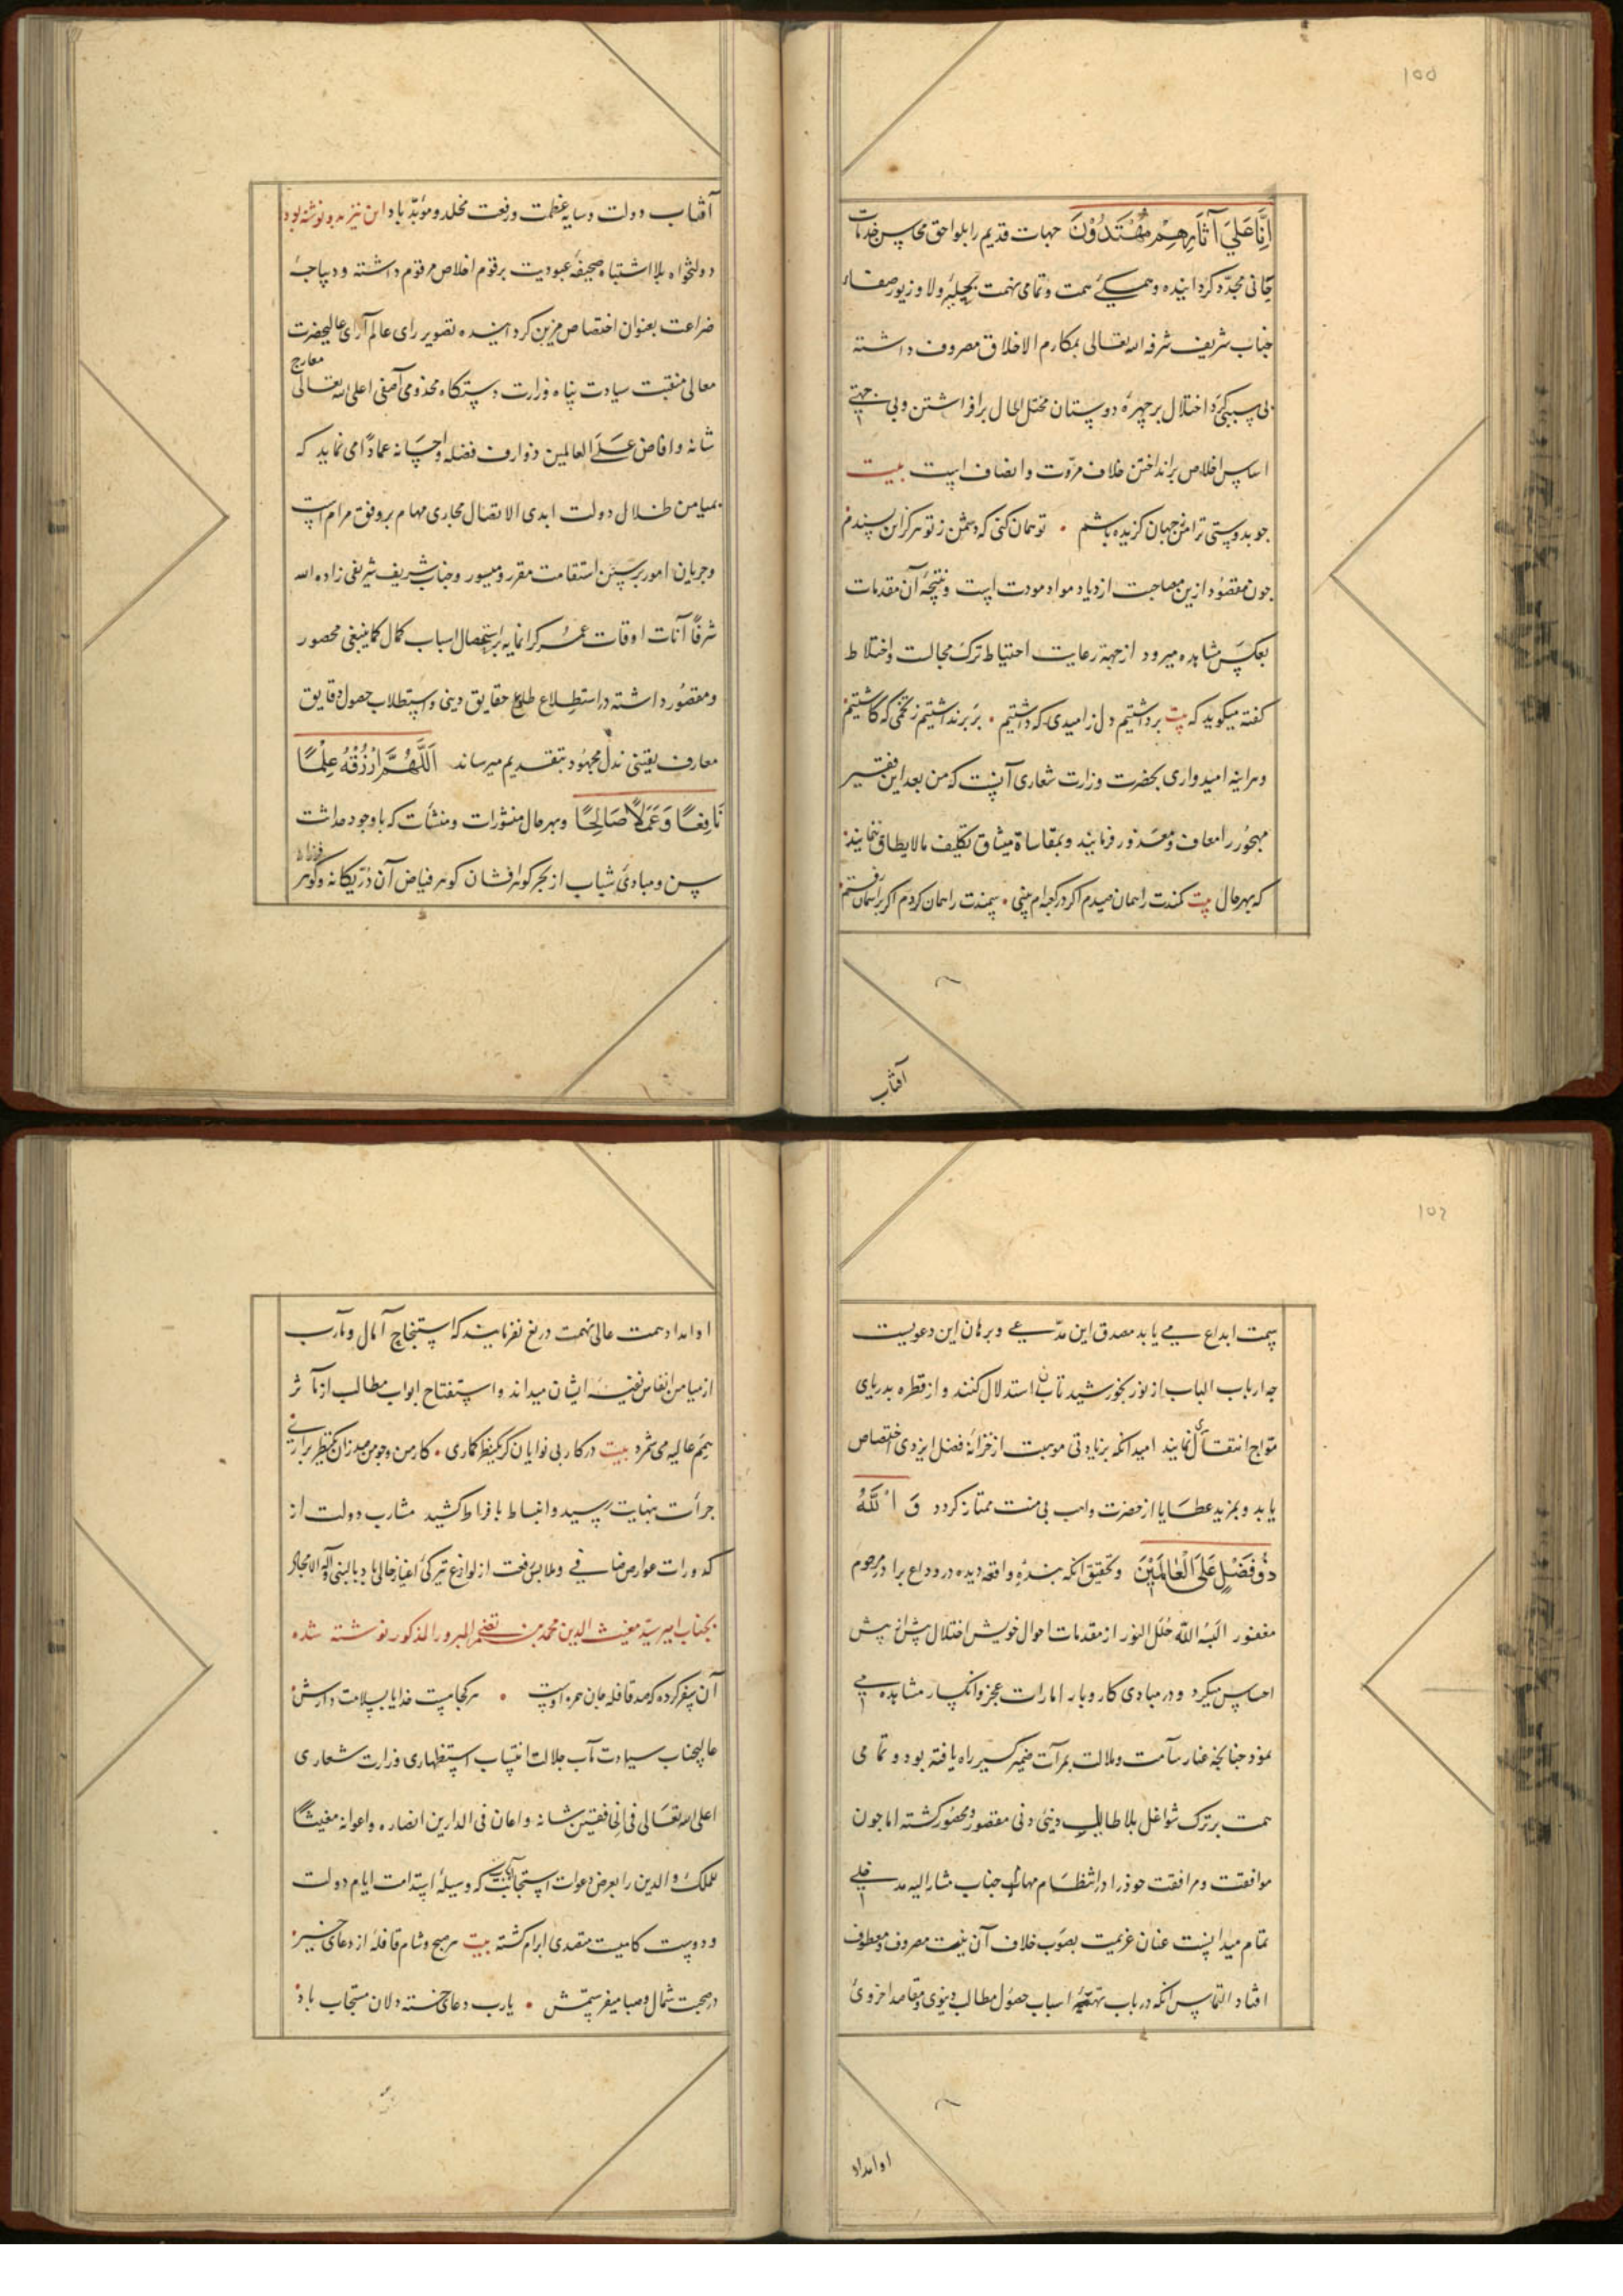 ۱۵۵
اِنَّا عَلیٰ آثَارِهِمْ مُقْتَدُوْنَ جهات قدیم را بلواحق محاسن خدمات
جانی مجدّد کردانیده و همکی همت و تمامی نهمت بحیله ولا و زیور صفاء
جناب شریف شرفه الله تعالی بمکارم الاخلاق مصروف داشته
بی سببی کرد اختلال بر چهرهٔ دوستان مختل الحال برافراشتن و بی جهتی
اساس اخلاص برانداختن خلاف مروّت و انصاف است بیت
جو بدوستی ترا من جهان کزیده باشم • تو همان کنی که دشمن ز تو هرکز این پسندم
جون مقصود ازین مصاحبت ازدیاد مواد مودت است و نتیجهٔ آن مقدمات
بعکس مشاهده میرود از جهة رعایت احتیاط ترک مجالست و اختلاط
کفته میکوید که بیت برداشتیم دل ز امیدی که داشتیم • بر برنداشتیم ز تخمی که کاشتیم
و هراینه امیدواری بحضرت وزارت شعاری آنست که من بعد این فقیر
مهجور را معاف و معذور فرمایند و بمقاساة میثاق تکلیف مالایطاق ننمایند
که بهرحال بیت کمندت را همان صیدم اکر در کعبه‌ام بینی • سمندت را همان کردم اکر بر آسمان رفتم
آفتاب
آفتاب دولت و سایه عظمت و رفعت مخلد و مؤبّد باد این نیز بدو نوشته بود
دولتخواه بلا اشتباه صحیفهٔ عبودیت برقوم اخلاص مرقوم داشته و دیباجهٔ
ضراعت بعنوان اختصاص مزین کردانیده تصویر رای عالم آرای عالیحضرت
معالی منقبت سیادت پناه وزارت دستکاه مخدومی آصفی اعلی الله تعالی معارج
شانه و افاض عَلَی العالمین ذوارف فضله و احسانه عماداً می نماید که
بمیامن ظلال دولت ابدی الاتصال مجاری مهام بر وفق مرام است
و جریان امور بر سنن استقامت مقرر و میسور و جناب شریف شریفی زاده الله
شرفًا آنات اوقات عمر کرانمایه بر استحصال اسباب کمال کما ینبغی محصور
و مقصور داشته در استطلاع طلایع حقایق دینی و استطلاب حصول دقایق
معارف یقینی بذل مجهود بتقدیم میرساند اَللَّهُمَّ ارْزُقْهُ عِلْمًا
نَافِعًا وَ عَمَلاً صَالِحًا و بهرحال منثورات و منشأت که با وجود حداثت
سن و مبادی شباب از بحر کوهرافشان کوهر فیاض آن درّ یکانه و کوهر
۱۵۶
سمت ابداع می یابد مصدق این مدّعی و برهان این دعویست
جه ارباب الباب از نور بخورشید تابان استدلال کنند و از قطره بدریای
موّاج انتقال نمایند امید آنکه بزیادتی موهبت از خزانهٔ فضل ایزدی اختصاص
یابد و بمزید عطایا از حضرت واهب بی منت ممتاز کردد وَ اللّٰهُ
ذُوفَضْلٍ عَلَی الْعَالَمِیْنَ و تحقیق آنکه بندهٔ واقعه دیده در وداع برادر مرحوم
مغفور البسه اللّه حلل النور از مقدمات احوال خویش اختلال پیش از پیش
احساس میکرد و در مبادی کار و بار امارات عجز و انکسار مشاهده می
نمود جنانجه غبار سآمت و ملالت بمرآت ضمیر کسیر راه یافته بود و تمامی
همت بر ترک شواغل بلا طایل دینی دنی مقصور و محصور کشته اما جون
موافقت و مرافقت خود را در انتظام مهمات جناب مشارالیه مدخلی
تمام میدانست عنان عزیمت بصوب خلاف آن نیت مصروف و معطوف
افتاد التماس آنکه در باب تهیّهٔ اسباب حصول مطالب دنیوی و مقاصد اخروی
او امداد
او امداد همت عالی نهمت دریغ نفرمایند که استنجاح آمال و مآرب
از میامن انفاس نفیسهٔ ایشان میداند و استفتاح ابواب مطالب از مآثر
همم عالیه می شمرد بیت در کار بی نوایان کر یکنظر کماری • کار من و جو من صد زان یکنظر براری
جرأت بنهایت رسید و انبساط بافراط کشید مشارب دولت از
کدورات عوارض صافی و ملابس رفعت از لوازع تیرکی اغیار خالی باد بالنبی و آله الامجاد
بجناب امیر سیّد مغیث الدین محمد بن المبرور المذکور نوشته شده
آن سفر کرده که صد قافله جان همره اوست • هر کجا هست خدایا بسلامت دارش
عالیجناب سیادت مآب جلالت انتساب استظهاری وزارت شعاری
اعلی الله تعالی فی الخافقین شانه و اعان فی الدارین انصاره و اعوانه مغیثًا
للملک و الدین را بعرض دعوات استجابت آیات که وسیلهٔ استدامت ایام دولت
و دوست کامیست متصدی ابرام کشته بیت هر صبح و شام قافلهٔ از دعای خیر
در صحبت شمال و صبا میفرستمش • یارب دعای خسته دلان مستجاب باد